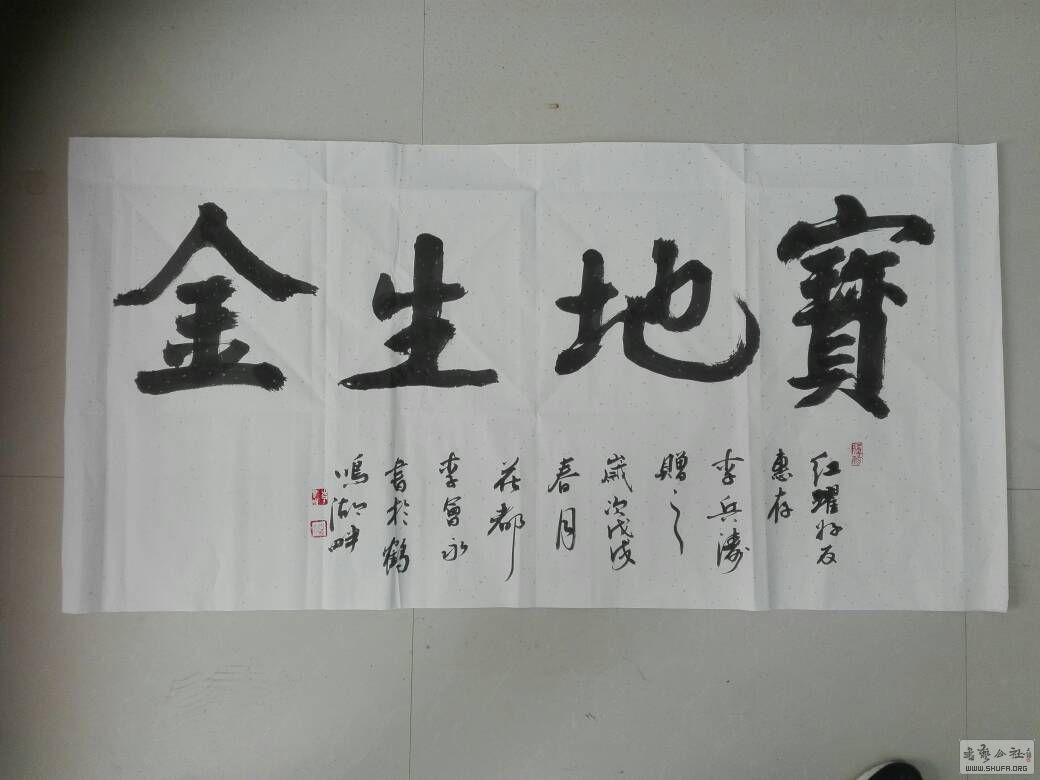 寶地生金
红躍好友
惠存
李兵濤
贈之
歲次戊戌
春月
花都
李會永
書於鶴
鳴湖畔
書藝公社
WWW.SHUFA.ORG